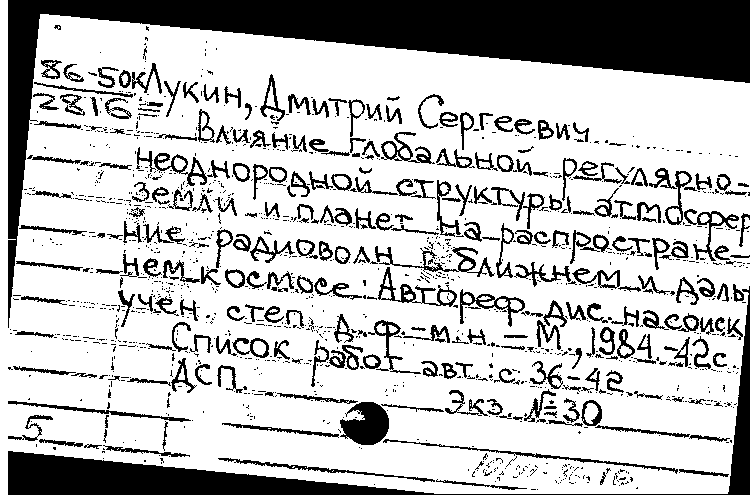 86-50к
2816 =
Лукин, Дмитрий Сергеевич
Влияние глобальной регулярно-
неоднородной структуры атмосфер
Земли и планет на распростране-
ние радиоволн в ближнем и даль
нем космосе. Автореф. дис. на соиск
учен. степ. д. ф.-м. н. - М., 1984. - 42 с
Список работ авт.: с. 36-42
ДСП. Экз. № 30
5